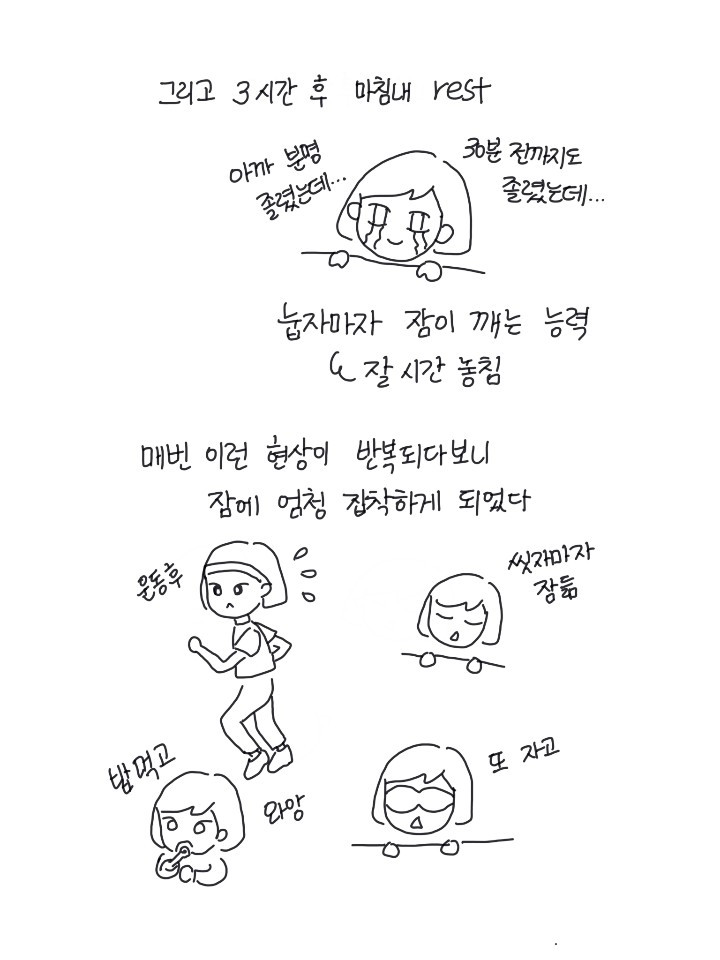 그리고 3시간 후 마침내 rest
아까 분명
졸렸는데...
30분 전까지도
졸렸는데...
눕자마자 잠이 깨는 능력
잘 시간 놓침
매번 이런 현상이 반복되다보니
잠에 엄청 집착하게 되었다
운동후
씻자마자
잠듦
밥먹고
와앙
또 자고